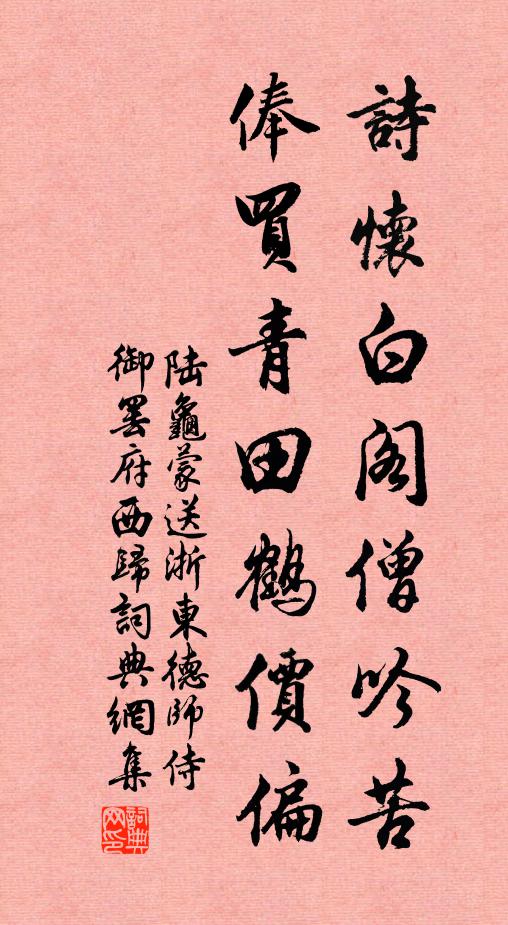 詩懷白阁僧吟苦
俸買青田鶴價偏
陆龜蒙送浙東德師侍
御罢府西歸詞典網集
詞典
网印